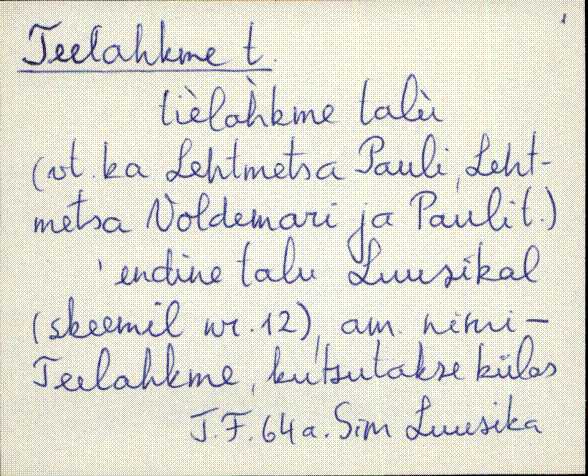 Teelahkme t.
tièlàhkme talù
(vt. ka Lehtmetsa Pauli, Leht-
metsa Voldemari ja Pauli t.)
' endine talu Luusikal
(skeemil nr. 12), am. nimi -
Teelahkme, kutsutakse külas
J.F. 64 a. Sim Luusika